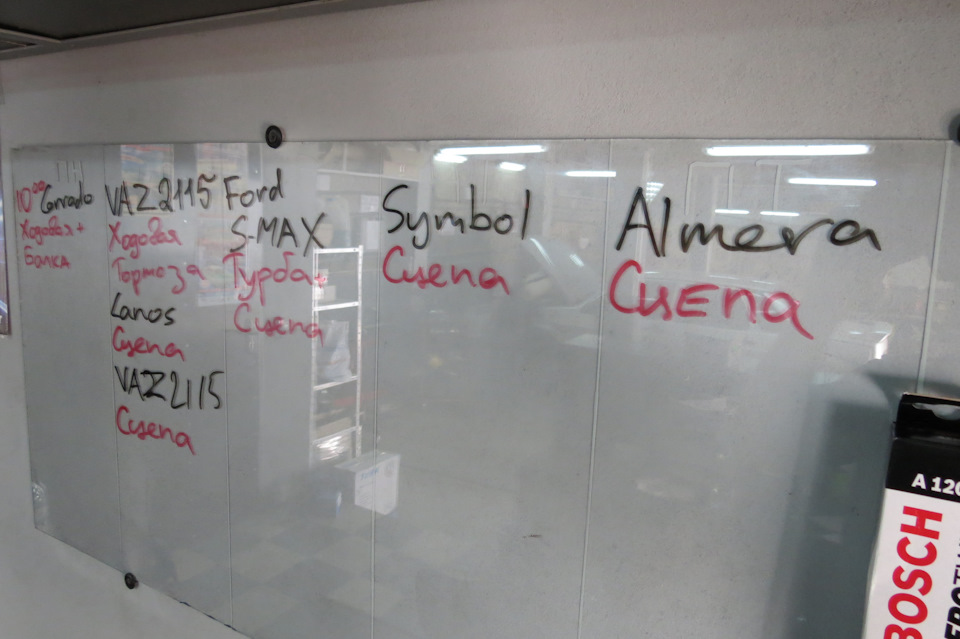 10⁰⁰ Corrado
Ходовая +
Балка
VAZ 2115
Ходовая
Тормоза
Lanos
Сцепа
VAZ 2115
Сцепа
Ford
S-MAX
Турба +
Сцепа
Symbol
Сцепа
Almera
Сцепа
A 120
BOSCH